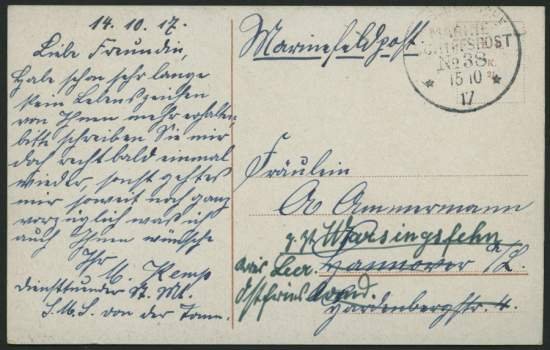 14. 10. 17.
Liebe Freundin,
Habe schon sehr lange
kein Lebenszeichen
von Ihnen mehr erhalten,
bitte schreiben Sie mir
doch recht bald einmal
wieder, sonst geht es
mir soweit noch ganz
vorzüglich was ich
auch Ihnen wünsche
Ihr
Kemp
S.M.S. von der Tann.
Marinefeldpost
MARINE
SCHIFFSPOST
No 38
15 10
17
Fräulein
A Ammermann
z. Zt. Warsingsfehn
Leer. Hannover
Ostfriesland.
Hardenbergstr. 4.